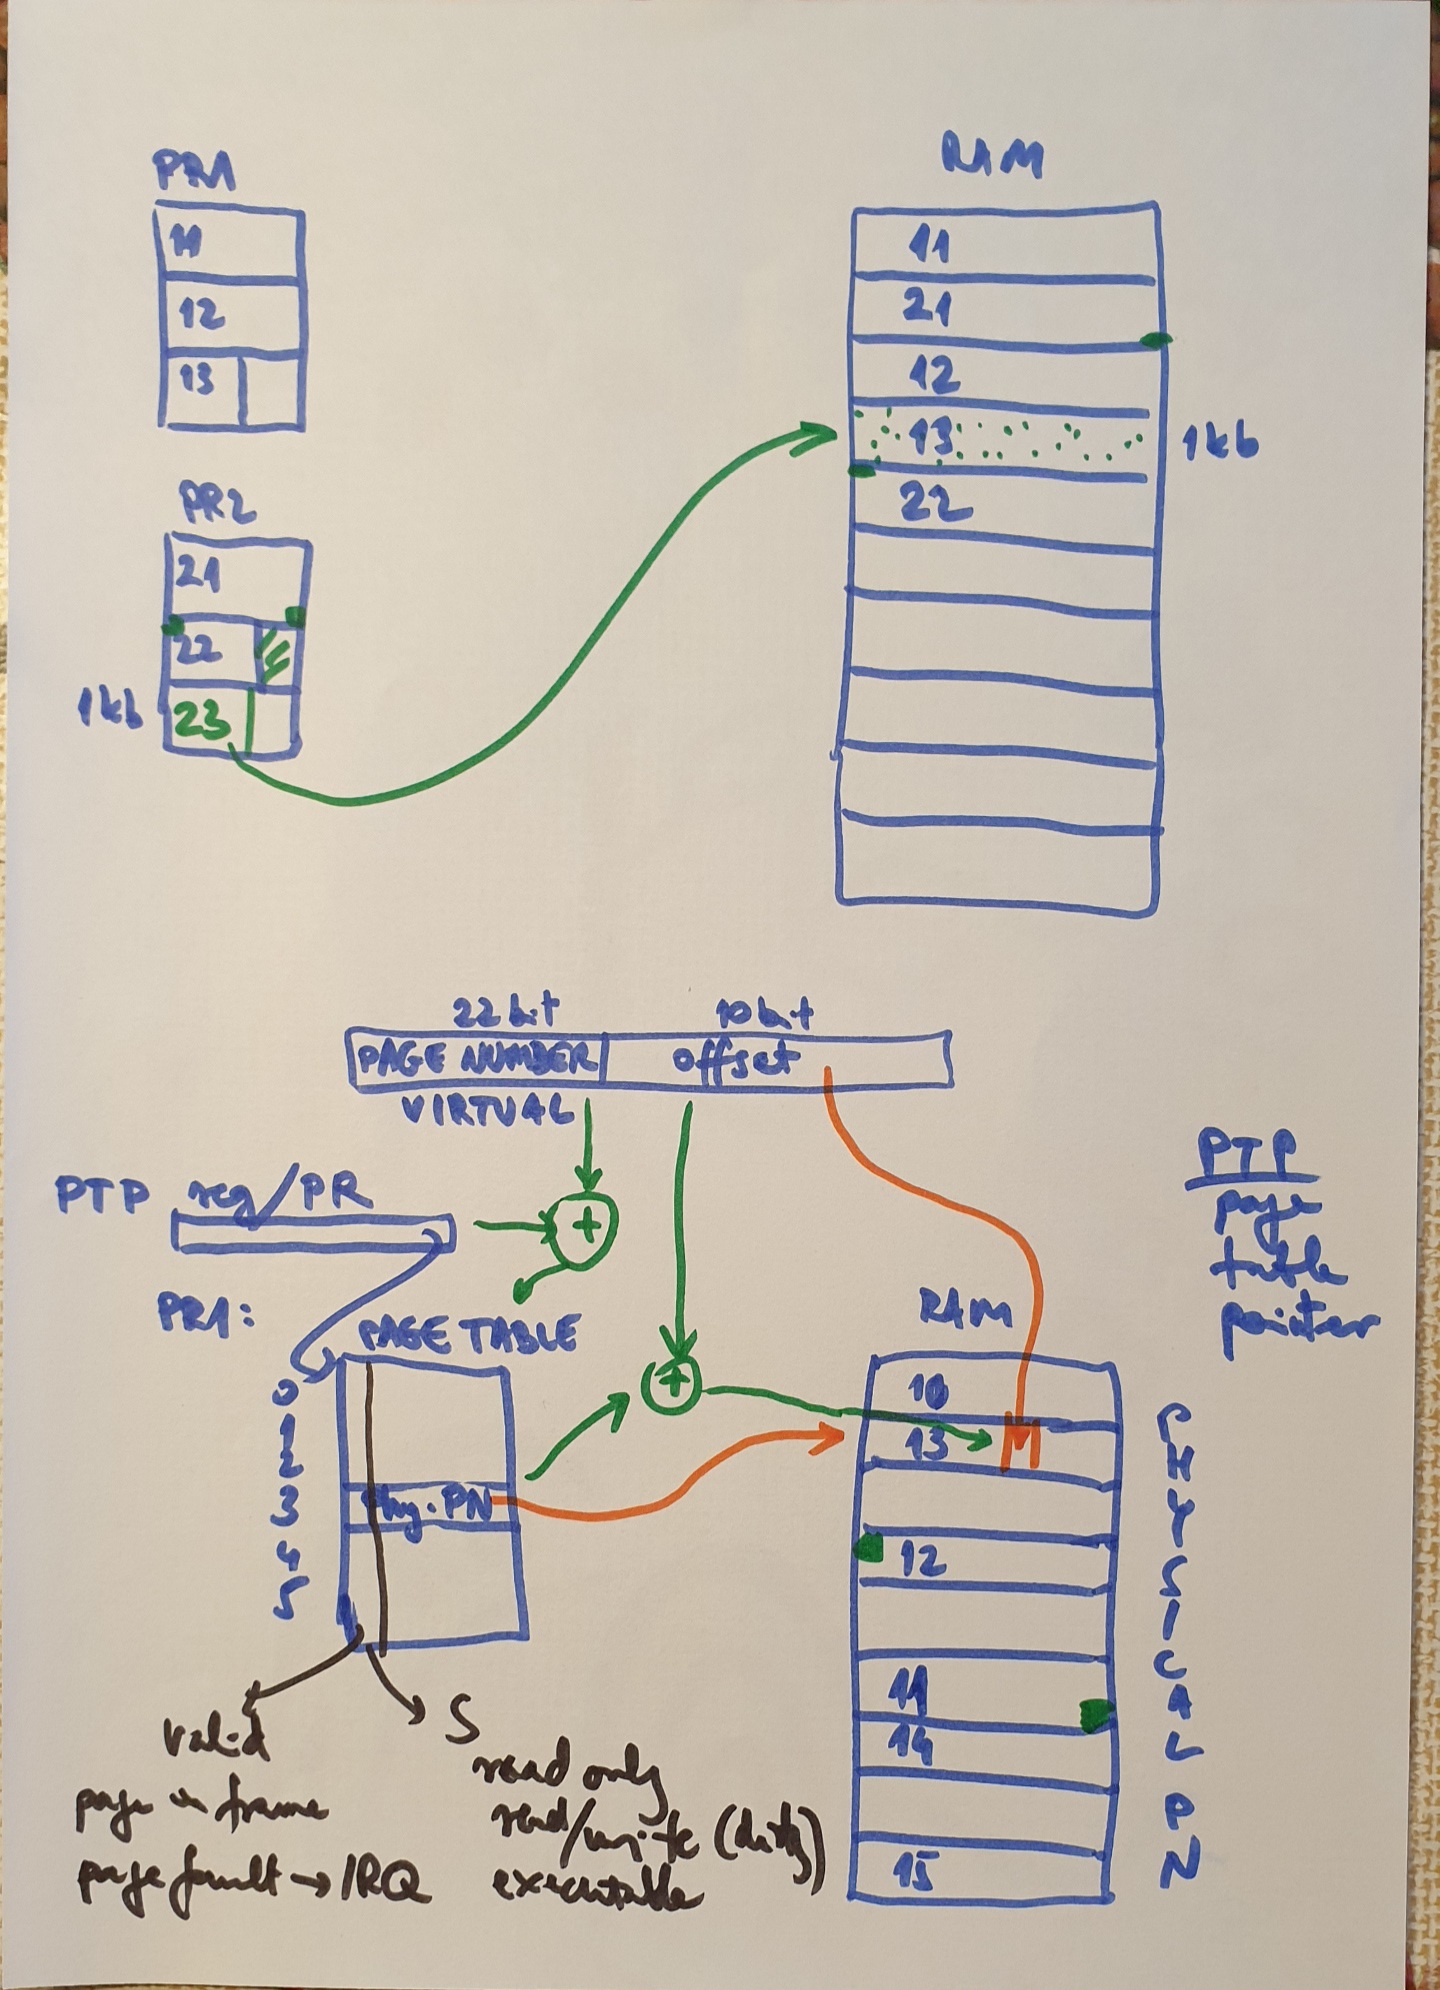 PR1
11
12
13
PR2
21
22
1kb
23
RAM
11
21
12
13
1kb
22
22 bit
10 bit
PAGE NUMBER
offset
VIRTUAL
PTP reg/PR
PR1:
PAGE TABLE
0
1
2
3
4
5
Phy. PN
valid
page in frame
page fault → IRQ
S
read only
read/write (dirty)
executable
RAM
10
13
M
12
11
14
15
PTP
page
table
pointer
PHYSICAL PN